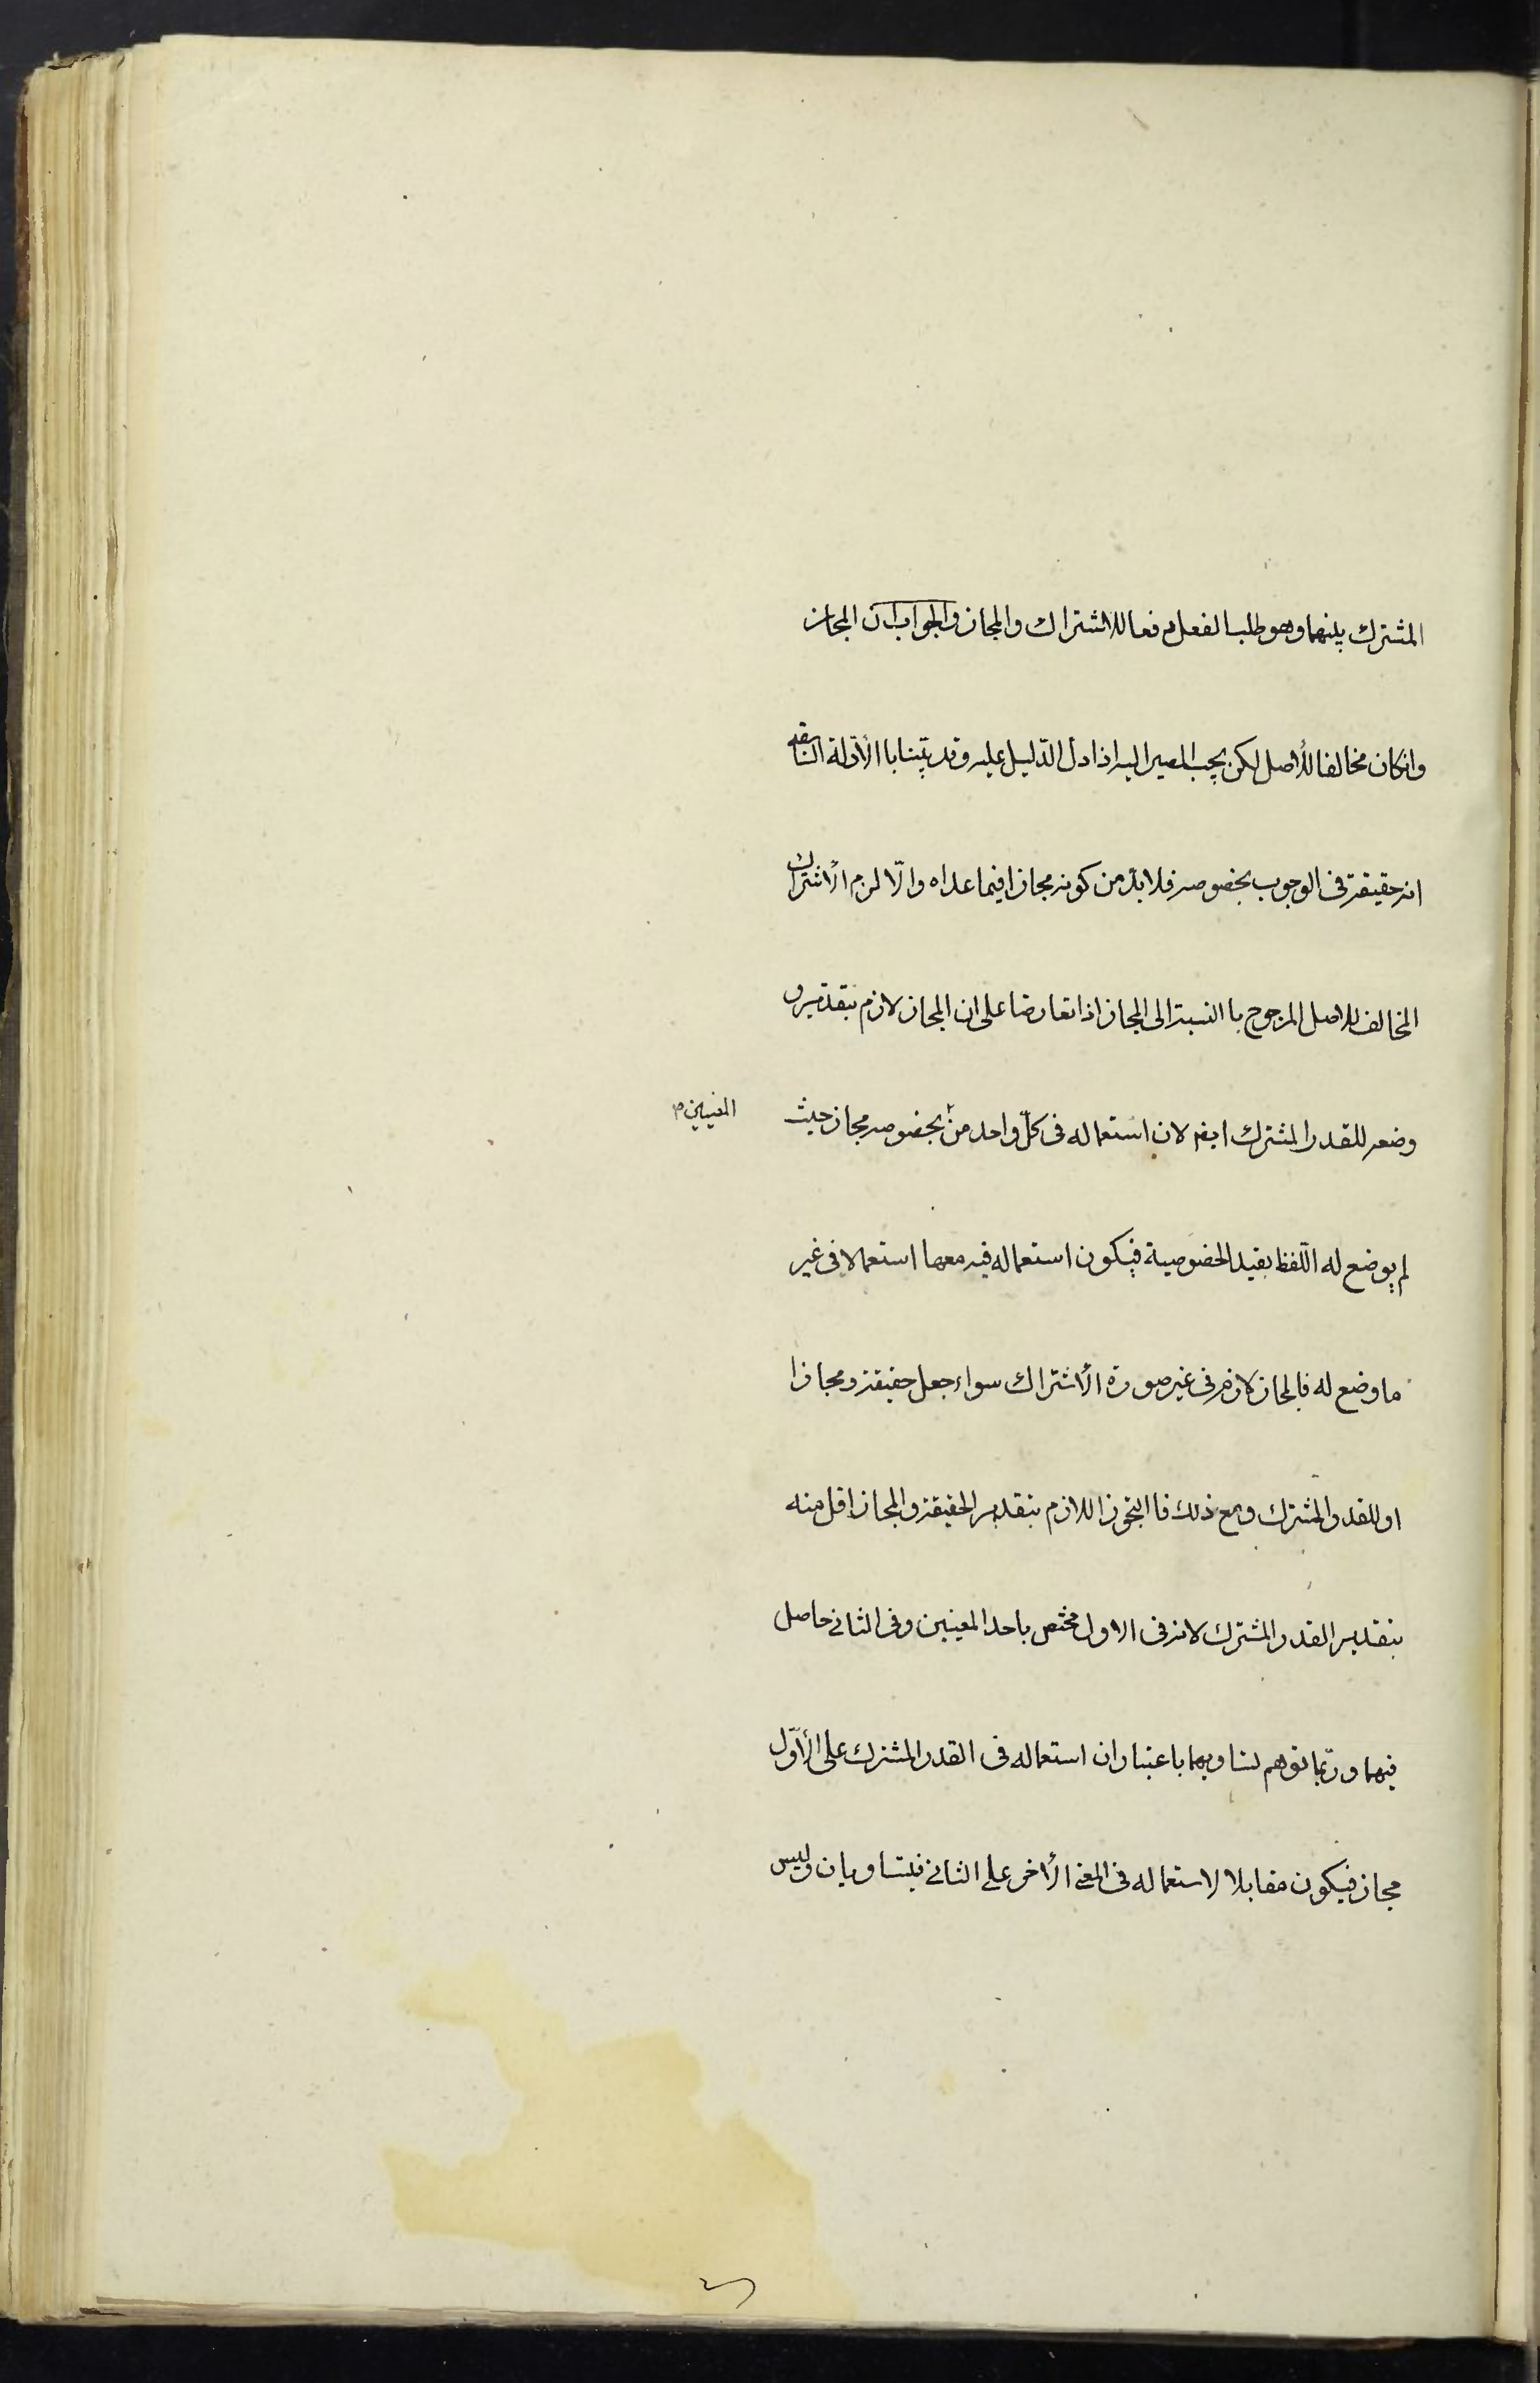 المشترك بينهما وهو طلب الفعل دفعا للاشتراك والمجاز والجواب ان المجاز
وانكان مخالفا للأصل لكن يجب المصير اليه اذا دل الدّليل عليه وقد بيّنا با الأدلة السّابقه
انه حقيقة فى الوجوب بخصوصه فلا بدّ من كونه مجازا فيما عداه والّا لزم الأشتراك
المخالف للاصل المرجوح با النسبة الى المجاز اذا تعارضا على ان المجاز لازم بتقدير
وضعه للقدر المشترك ايضم لان استعماله فى كلّ واحد من بخصوصه مجاز حيث
المعنيين م
لم يوضع له اللّفظ بقيد الخصوصية فيكون استعماله فيه معها استعمالا فى غير
ما وضع له فالمجاز لازم فى غير صورة الأشتراك سواء جعل حقيقة ومجازا
او للقدر المشترك ومع ذلك فا التجوز اللازم بتقدير الحقيقة والمجاز اقل منه
بتقدير القدر المشترك لانه فى الاول مختص باحد المعنيين وفى الثانى حاصل
فيهما وربّما توهم تساويهما باعتبار ان استعماله فى القدر المشترك على الأوّل
مجاز فيكون مقابلا لاستعماله فى المعنى الأخر على الثانى فيتساويان وليس